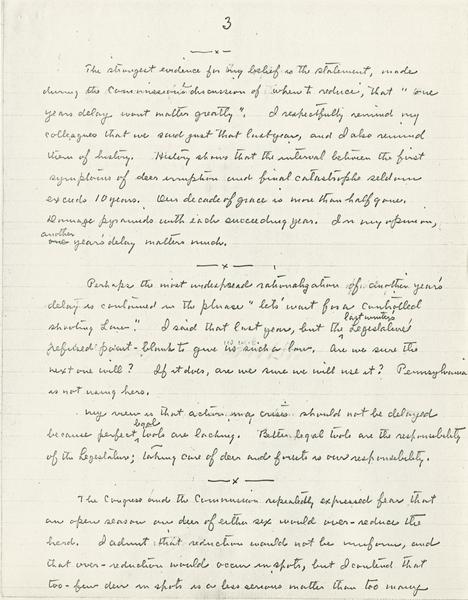 3
The strongest evidence for my belief is the statement, made
during the Commission's discussion of when to reduce, that "one
years delay wont matter greatly". I respectfully remind my
colleagues that we said just that last year, and I also remind
them of history. History shows that the interval between the first
symptoms of deer irruption and final catastrophe seldom
exceeds 10 years. Our decade of grace is more than half gone.
Damage pyramids with each succeeding year. In my opinion,
another
year's delay matters much.
Perhaps the most widespread rationalization of another year's
delay is contained in the phrase "lets' wait for a controlled
shooting law." I said that last year, but the last winters Legislature
refused point-blank to give us such a law. Are we sure the
next one will? If it does, are we sure we will use it? Pennsylvania
is not using hers.
My view is that action in a crisis should not be delayed
because perfect legal tools are lacking. Better legal tools are the responsibility
of the Legislature; taking care of deer and forests is our responsibility.
The Congress and the Commission repeatedly expressed fear that
an open season on deer of either sex would over-reduce the
herd. I admit that reduction would not be uniform, and
that over-reduction would occur in spots, but I contend that
too-few deer in spots is a less serious matter than too many